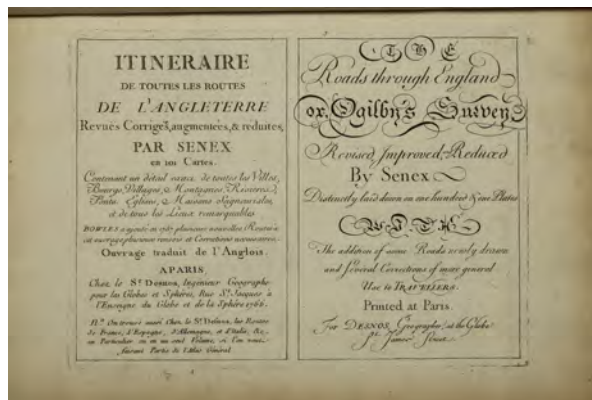 ITINERAIRE
DE TOUTES LES ROUTES
DE L'ANGLETERRE
Revues Corrigeẽs, augmentées, & reduites,
PAR SENEX
en 101 Cartes.
Contenant un détail exact de toutes les Villes,
Bourgs, Villages, Montagnes, Rivieres,
Ponts, Eglises, Maisons Seigneuriales,
et de tous les Lieux remarquables
BOWLES a ajouté en 1757 plusieurs nouvelles Routes à
cet ouvrage plusieurs renvois et Corrections necessaires.
Ouvrage traduit de l'Anglois.
A PARIS,
Chez le Sr. Desnos, Ingénieur Geographe
pour les Globes et Sphéres, Rue St. Jacques à
l'Enseigne du Globe et de la Sphére 1766.
On trouve aussi Chez le Sr. Desnos, les Routes
de France, d'Espagne, d'Allemagne, et d'Italie, &c.
en Particulier ou en un seul Volume, si l'on veut,
faisant Partie de l'Atlas Général
THE
Roads through England
or, Ogilby's Survey
Revised, Improved, Reduced
By Senex
Distinctly laid down on one hundred & one Plates
WITH
The addition of some Roads newly drawn
and several Corrections of more general
Use to TRAVELLERS.
Printed at Paris.
For DESNOS, Geographer, at the Globe
St. James Street